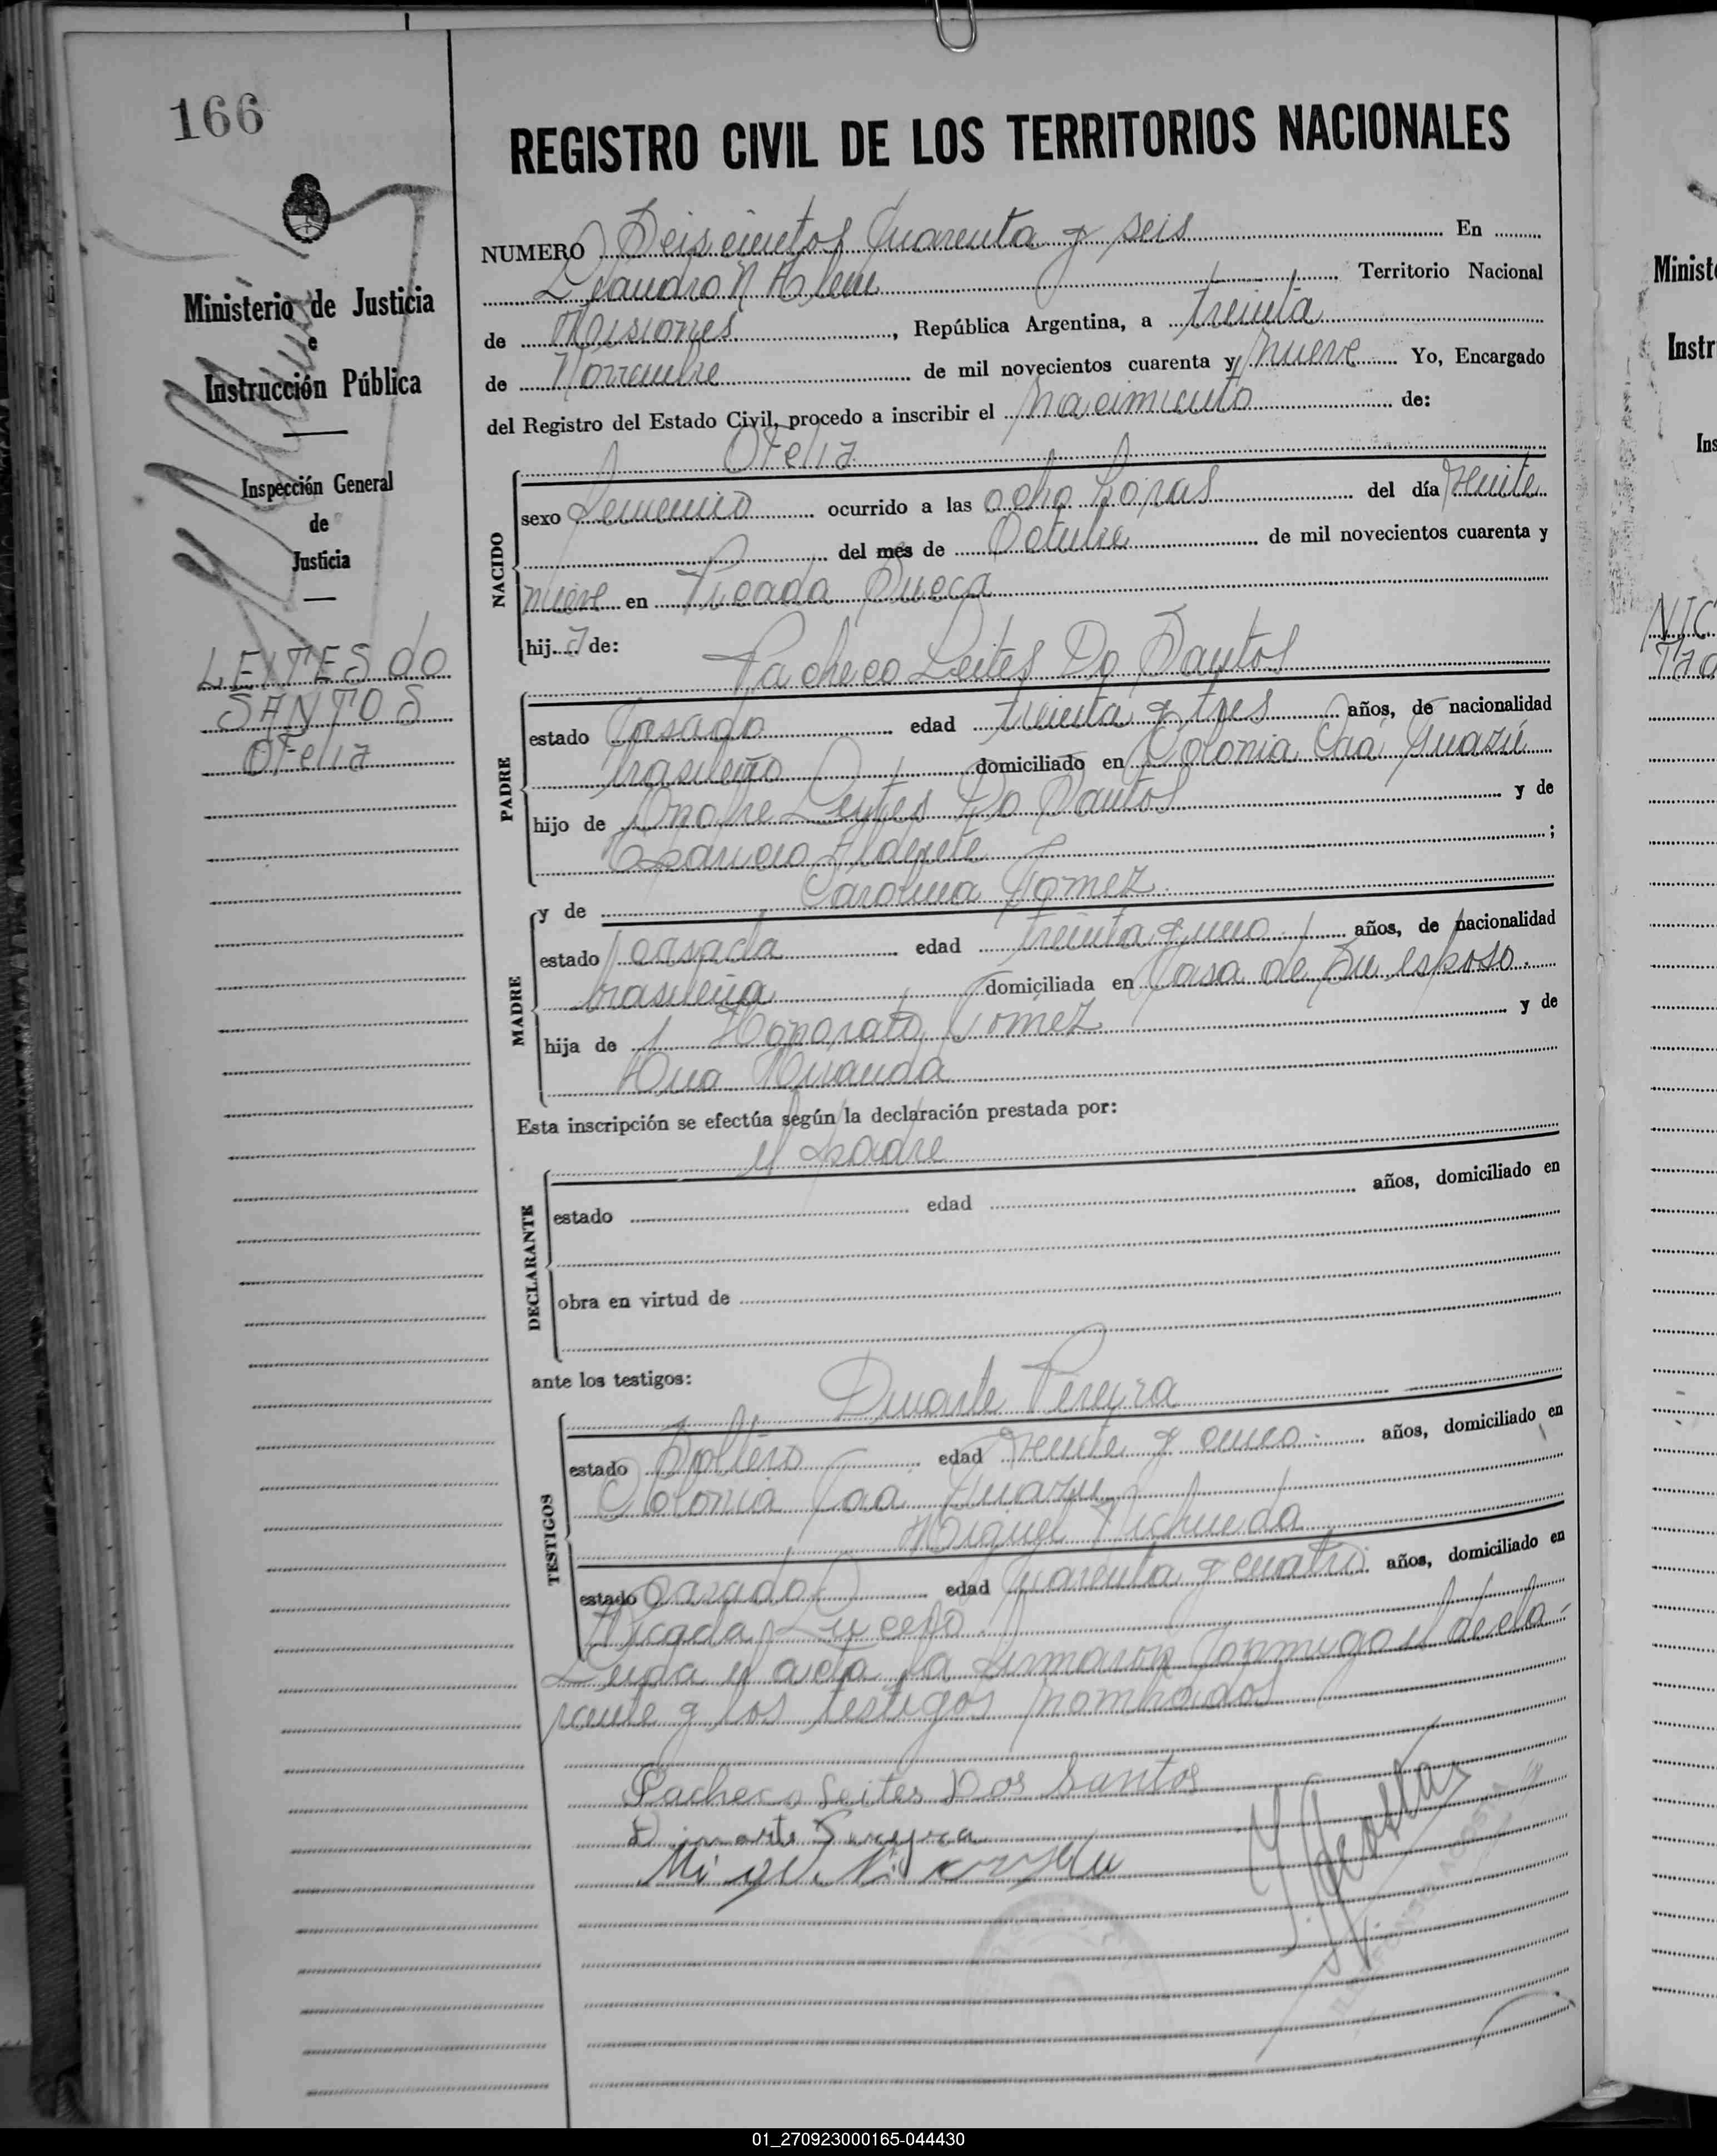 166
REGISTRO CIVIL DE LOS TERRITORIOS NACIONALES
Ministerio de Justicia
e
Instrucción Pública
Inspección General
de
Justicia
LEITES do
SANTOS
OFelia
NUMERO Seiscientos Cuarenta y seis En
Leandro N Alem Territorio Nacional
de Misiones, República Argentina, a treinta
de Noviembre de mil novecientos cuarenta y nueve Yo, Encargado
del Registro del Estado Civil, procedo a inscribir el nacimiento de:
OFelia
NACIDO
sexo femenino ocurrido a las ocho horas del día Veinte
del mes de Octubre de mil novecientos cuarenta y
nueve en Picada Sueca
hij a de:
Pacheco Leites Do Santos
PADRE
estado Casado edad treinta y tres años, de nacionalidad
brasileño domiciliado en Colonia Caá Guazú
hijo de Onofre Leytes Do Santos y de
Alderete ;
y de Carolina Gomez
MADRE
estado casada edad treinta y uno años, de nacionalidad
brasileña domiciliada en Casa de Su esposo.
hija de Honorato Gomez y de
Ana Miranda
Esta inscripción se efectúa según la declaración prestada por:
el padre
DECLARANTE
estado edad años, domiciliado en
obra en virtud de
ante los testigos:
Duarte Pereyra
TESTIGOS
estado Soltero edad Veinte y cinco años, domiciliado en
Colonia Caa Guazu
Miguel
estado casado edad Cuarenta y cuatro años, domiciliado en
Picada
Leida el acta la firmaron Conmigo el decla-
rante y los testigos nombrados
Pacheco Leites Dos Santos
Duarte Pereyra
Miguel
01_270923000165-044430